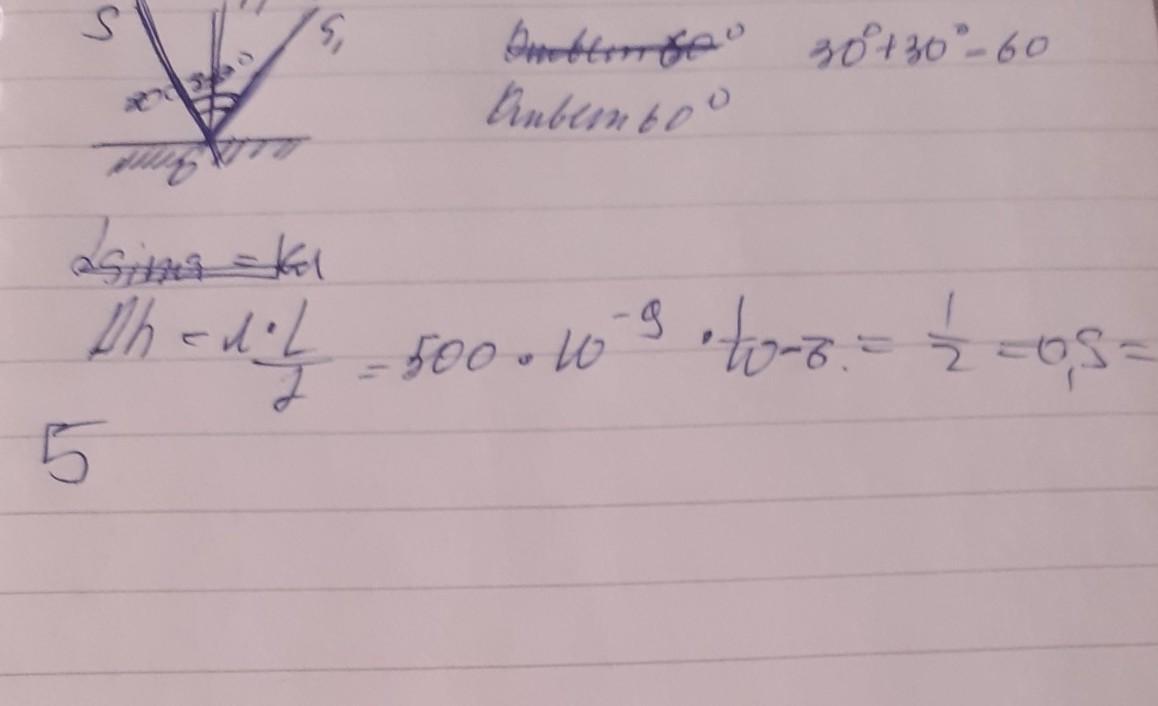 S S₁
30° 30°
~~Ответ 60°~~ 30°+30°=60
Ответ 60°
~~dsinα = kλ~~
Δh = λ·L/d = 500·10⁻⁹ · 1/10-6. = 1/2 = 0,5 =
5